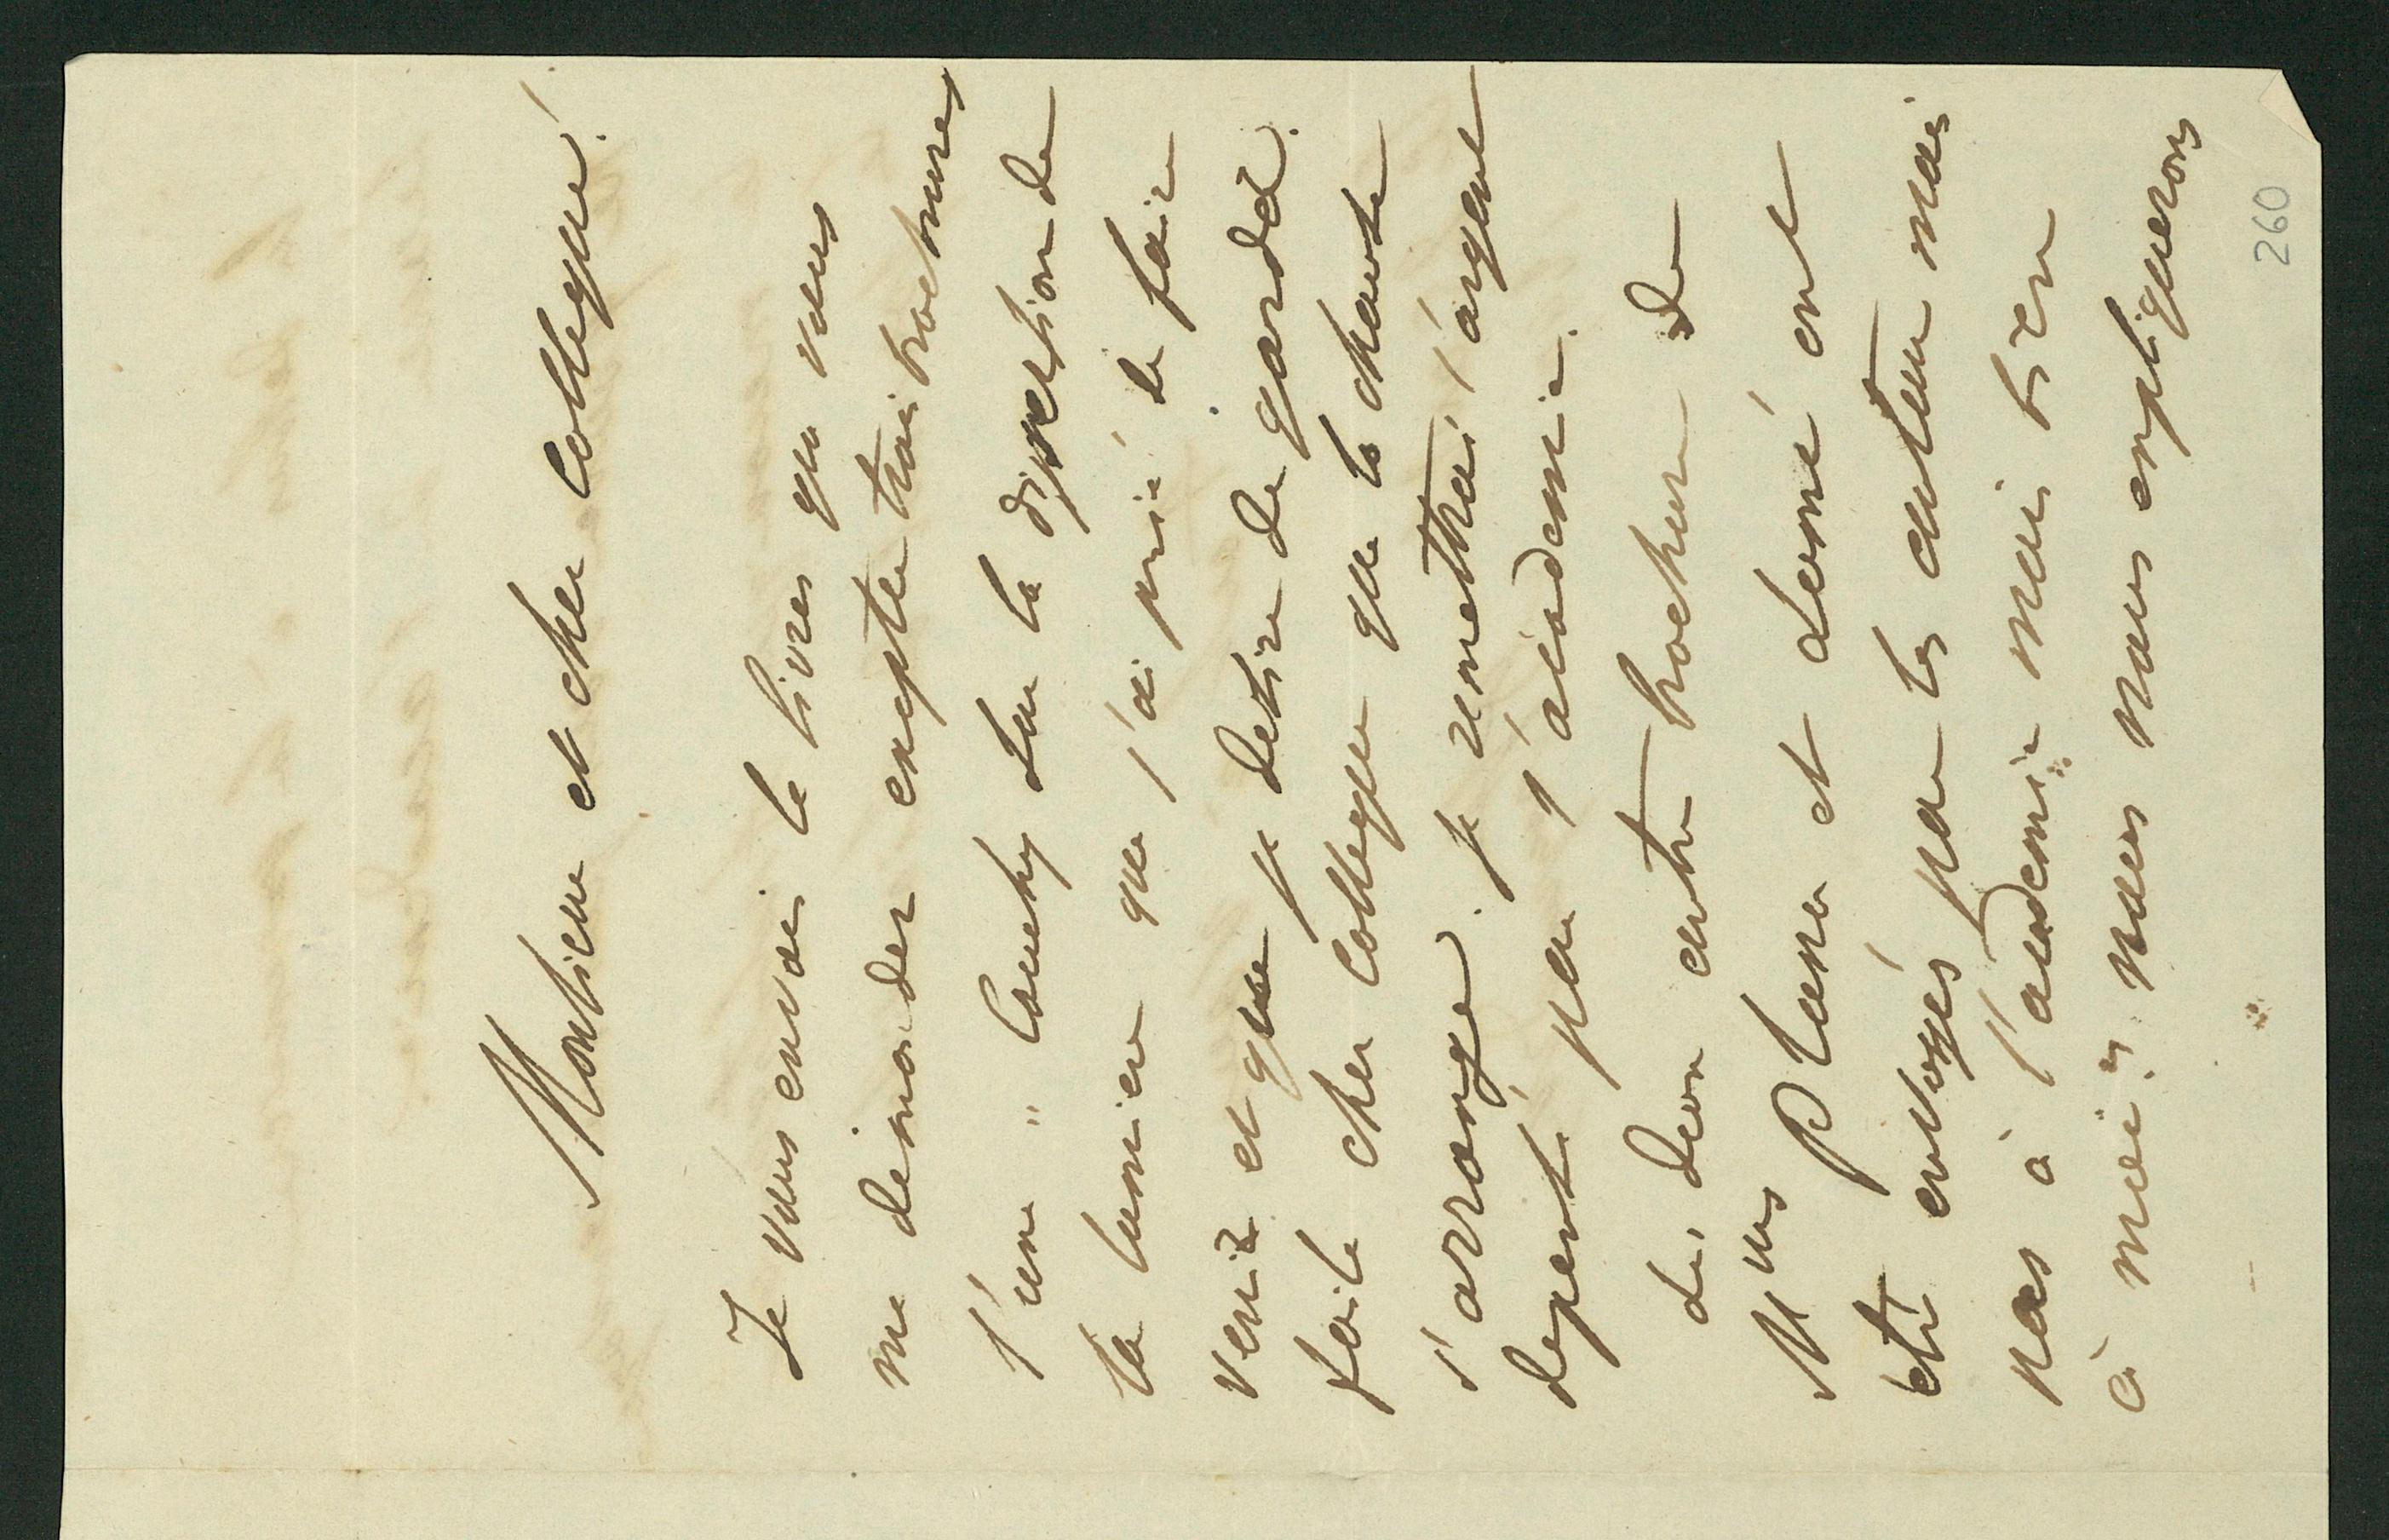 Monsieur et cher collegue!
Je vous envoi le livres que vous
me demandez exepter trois brochures
l'une " Cauchy sur la dispersion de
la lumiere que j'ai prié de faire
venir et que je desire de garder.
faite cher collegue que la chause
s'arrange. je remettrai l'argent
depensé par l'academie.
Les deux autre brochure de
Mrs Plana et Lamé ont
eté envoyés par les auteur mais
pas à l'academie mais bien
à moi; nous nous expliquerons
260